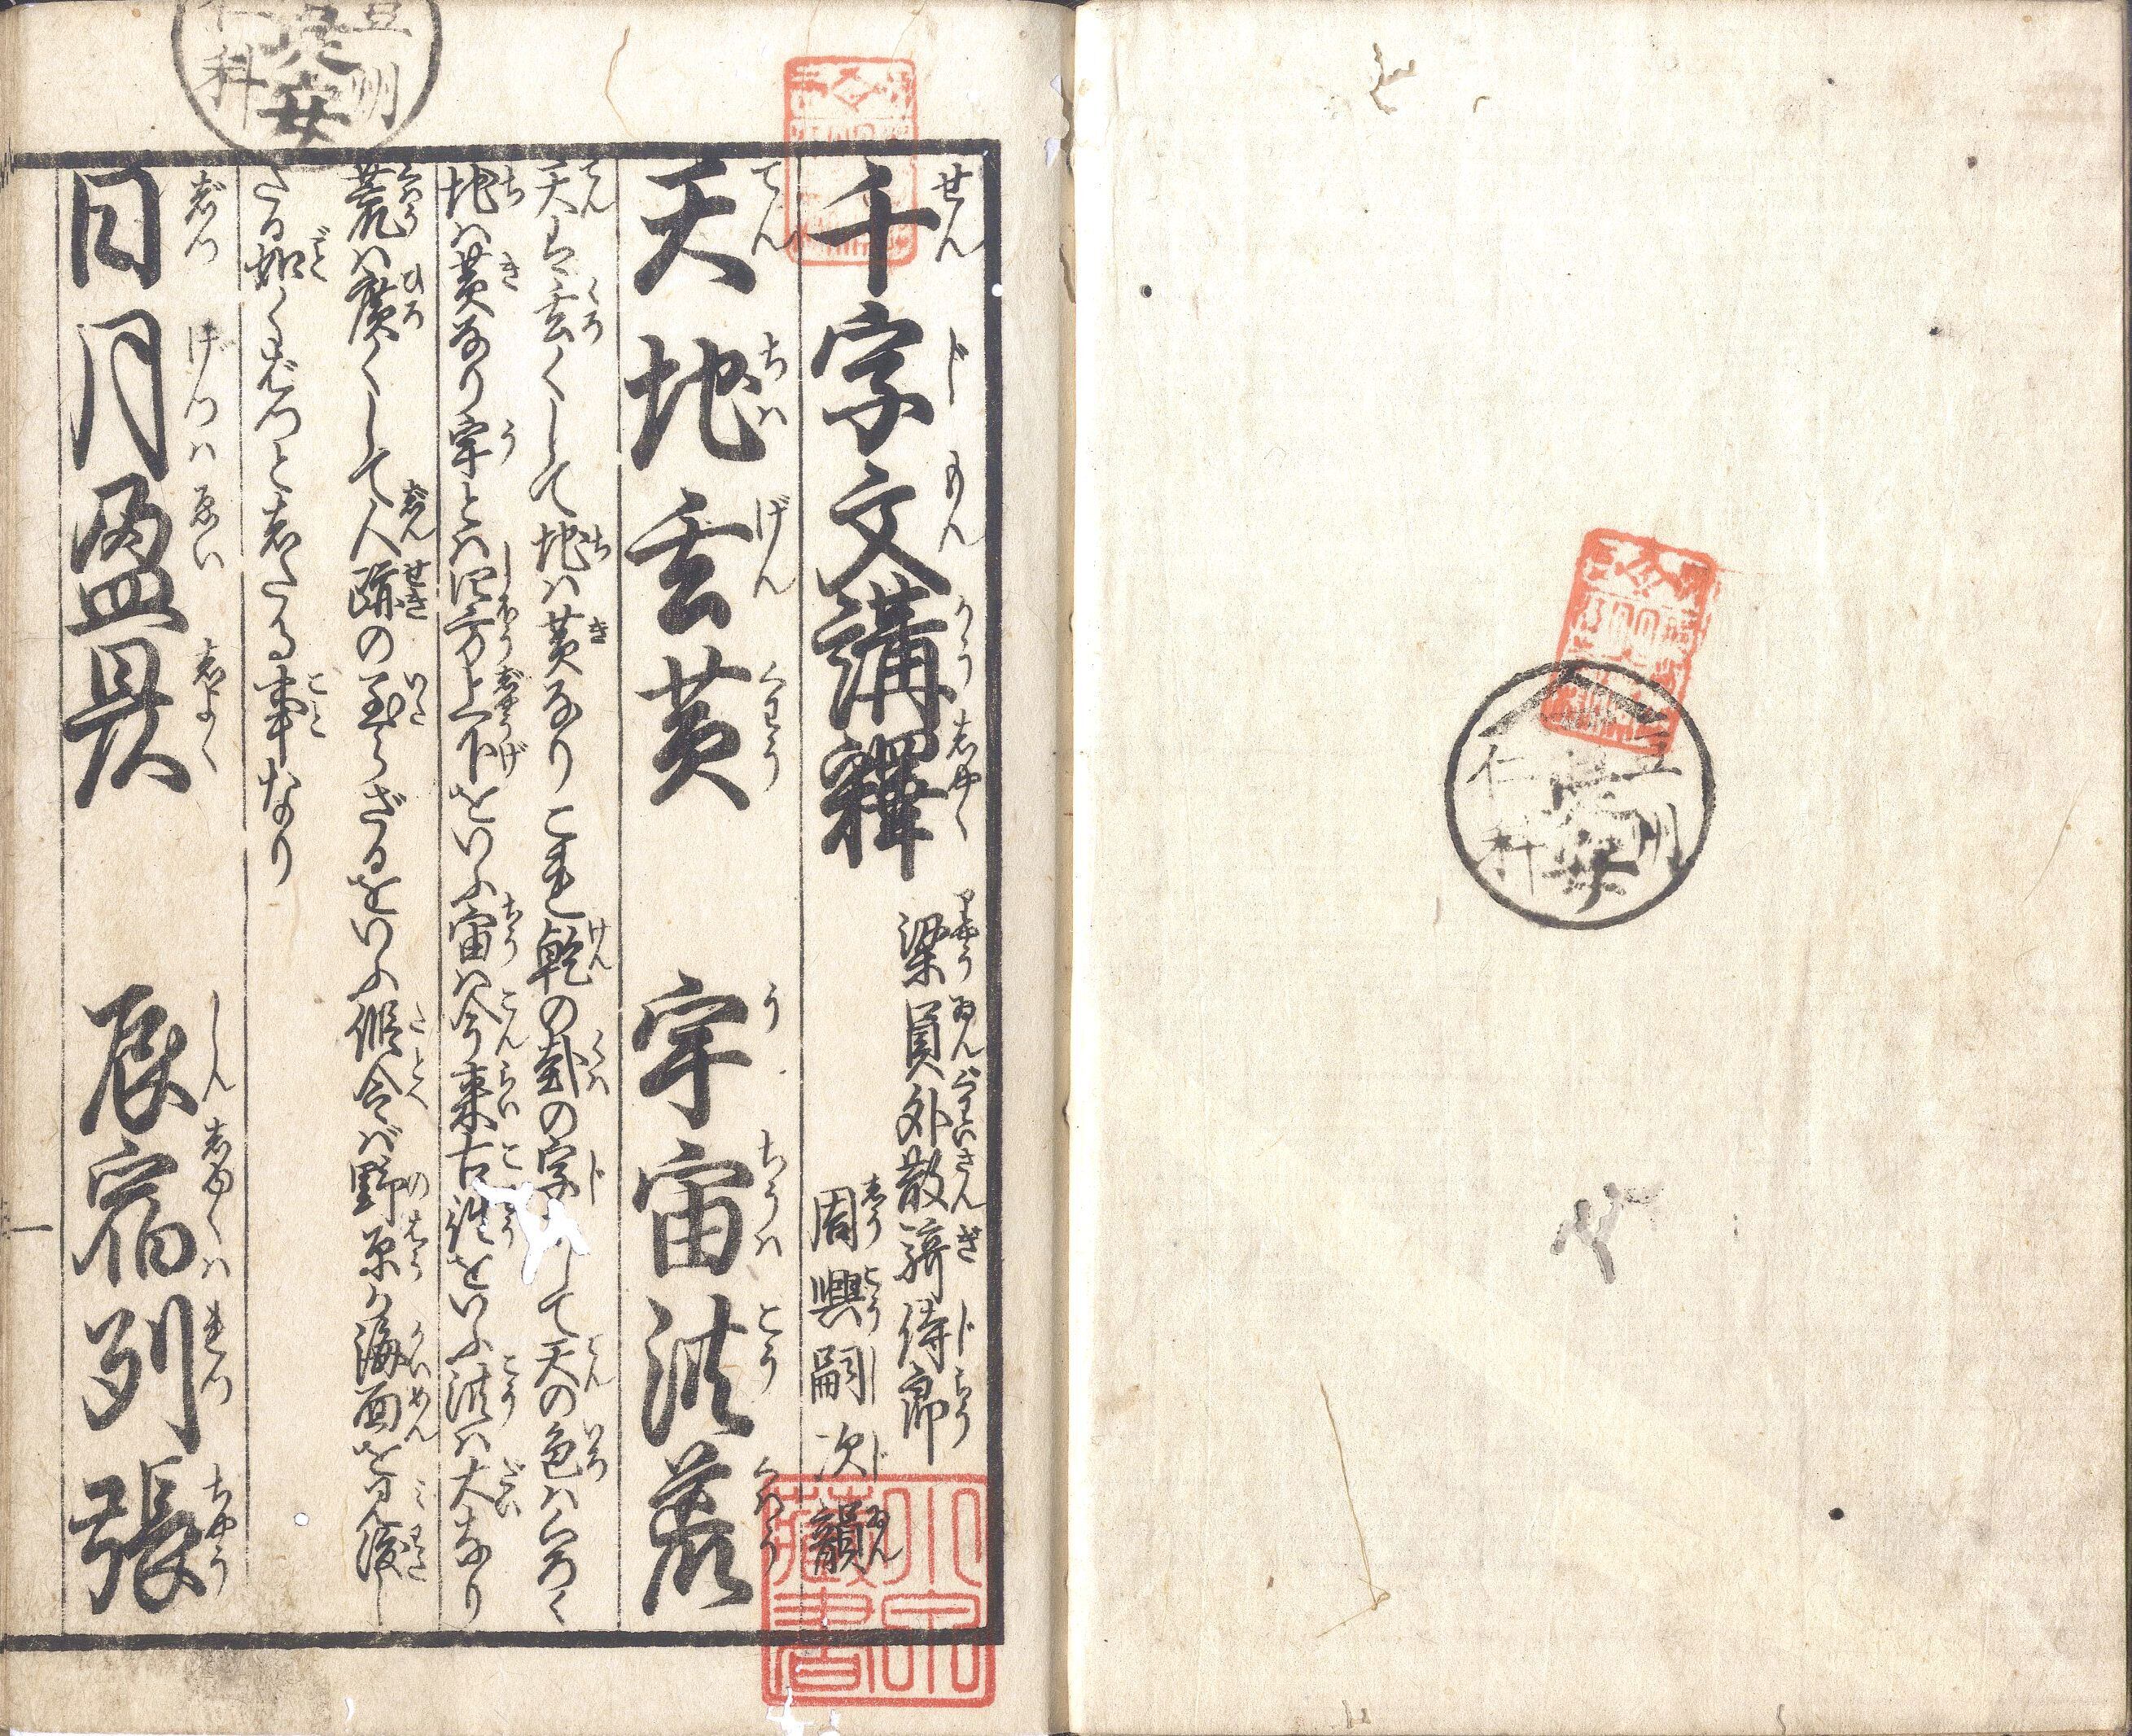 千字文講釋
梁員外散騎侍郎
周興嗣次韻
天地玄黄 宇宙洪荒
天は玄くして地ハ黄なりこれ乾の卦の字して天の色ハくろく
地ハ黄なり宇とハ四方上下をいふ宙ハ今来古往をいふ洪ハ大なり
荒ハ廣くして人跡の至らざるをいふ假令バ野原か海面を見渡し
たる如くむつとしたる事なり
日月盈昃 辰宿列張
豆州
仁科
安
豆州
仁科
安
藏書